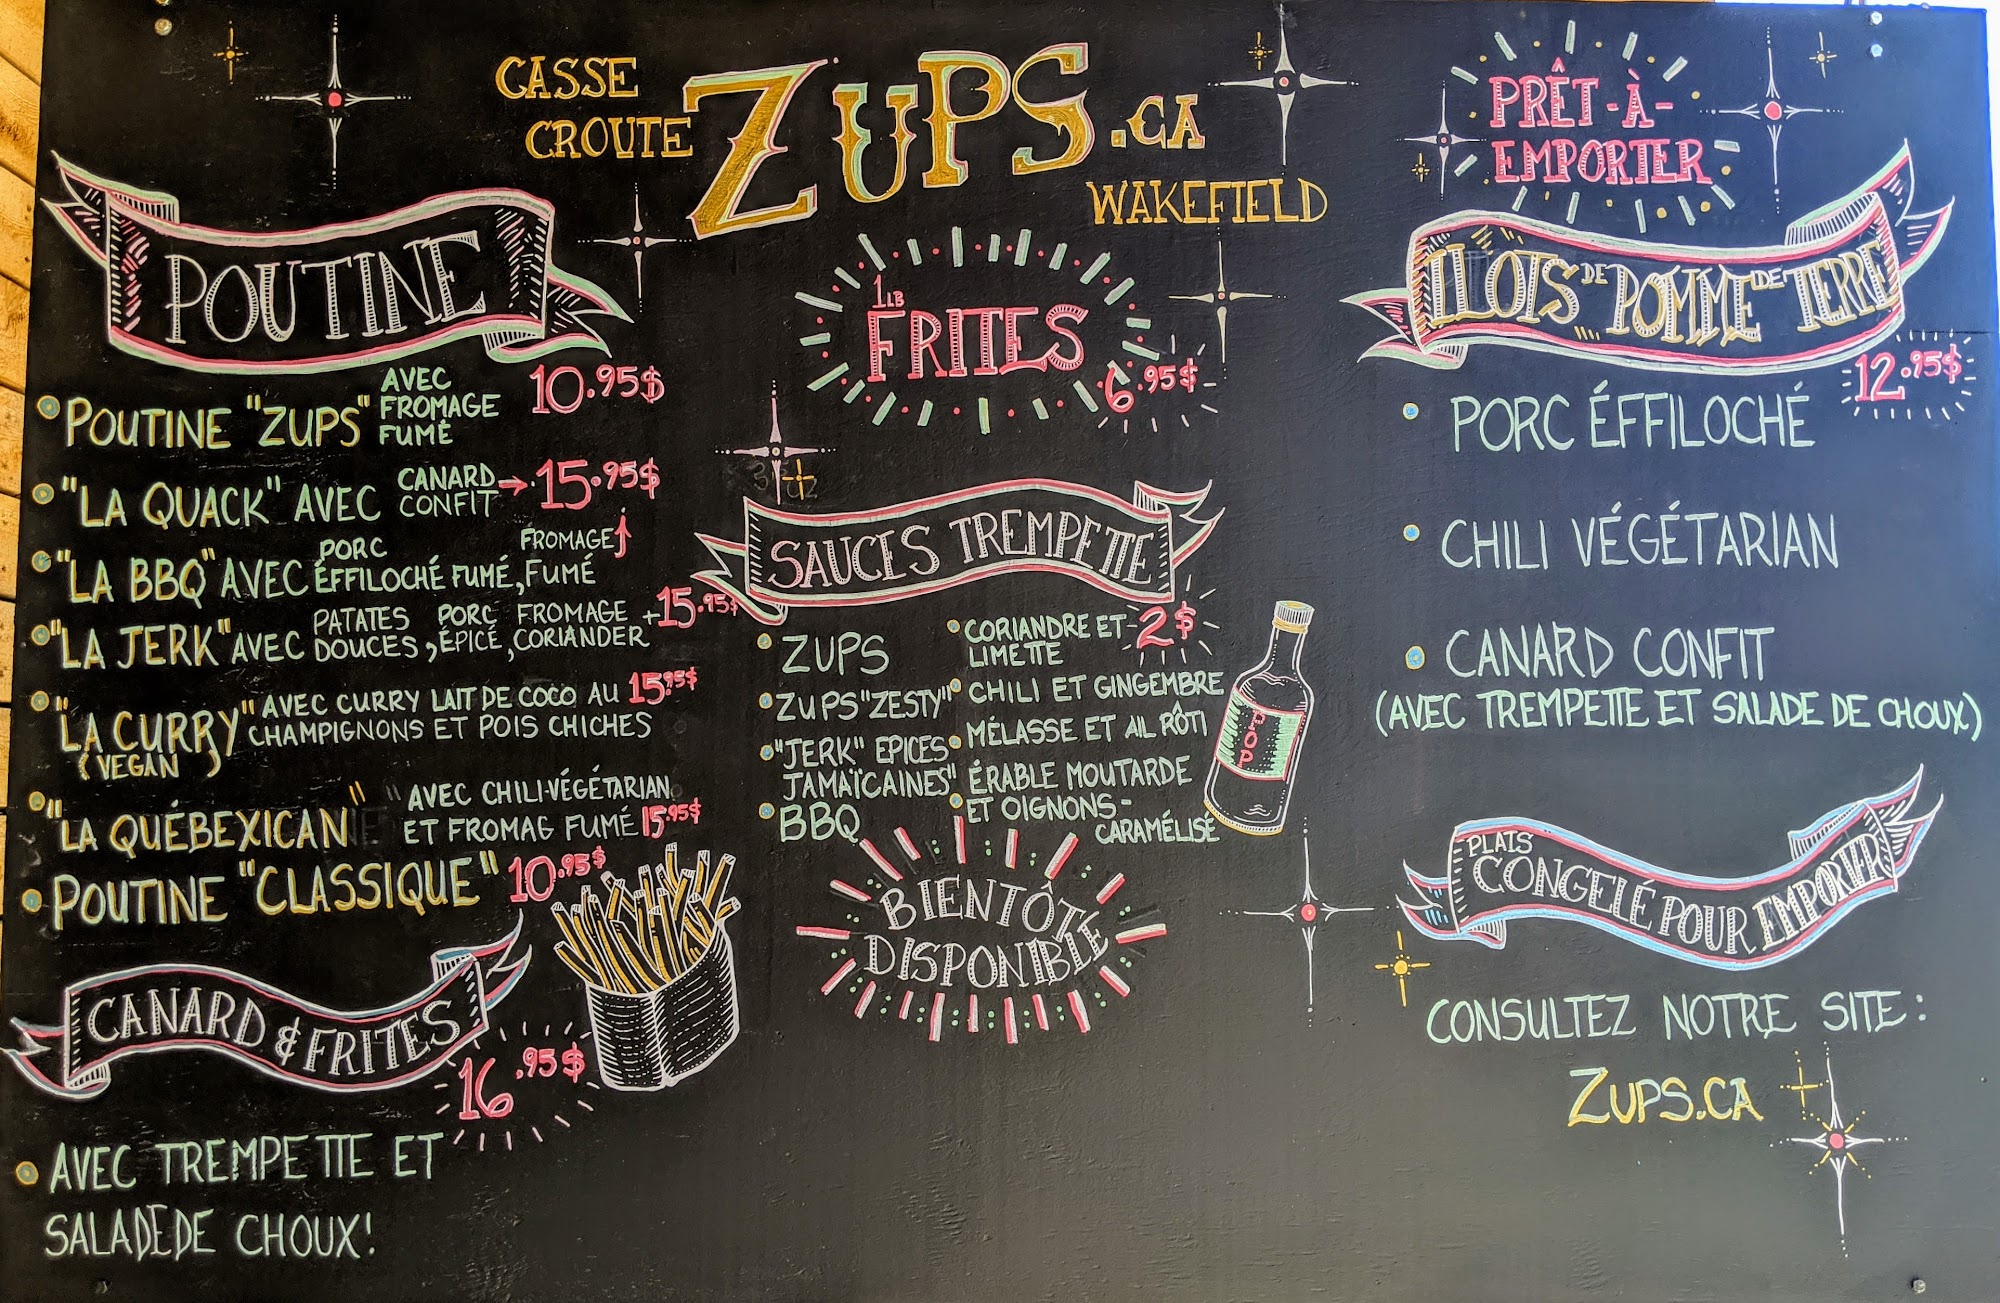 CASSE
CROUTE
ZUPS.CA
WAKEFIELD
POUTINE
POUTINE "ZUPS" AVEC FROMAGE FUMÉ 10.95$
"LA QUACK" AVEC CANARD CONFIT → 15.95$
"LA BBQ" AVEC PORC ÉFFILOCHÉ FUMÉ, FROMAGE FUMÉ
"LA JERK" AVEC PATATES DOUCES, PORC ÉPICÉ, FROMAGE + CORIANDER 15.95$
"LA CURRY" AVEC CURRY LAIT DE COCO AU 15.95$
CHAMPIGNONS ET POIS CHICHES
(VEGAN)
"LA QUÉBEXICAN" AVEC CHILI-VÉGÉTARIAN
ET FROMAG FUMÉ 15.95$
POUTINE "CLASSIQUE" 10.95$
CANARD & FRITES
16.95$
AVEC TREMPETTE ET
SALADE DE CHOUX!
1LB
FRITES
6.95$
SAUCES TREMPETTE
2$
ZUPS
ZUPS "ZESTY"
"JERK" EPICES
JAMAÏCAINES"
BBQ
CORIANDRE ET
LIMETTE
CHILI ET GINGEMBRE
MÉLASSE ET AIL RÔTI
ÉRABLE MOUTARDE
ET OIGNONS-
CARAMÉLISÉ
POP
BIENTÔT
DISPONIBLE
PRÊT-À-
EMPORTER
ILOTS DE POMME DE TERRE
12.95$
PORC ÉFFILOCHÉ
CHILI VÉGÉTARIAN
CANARD CONFIT
(AVEC TREMPETTE ET SALADE DE CHOUX)
PLATS
CONGELÉ POUR EMPORTER
CONSULTEZ NOTRE SITE:
ZUPS.CA